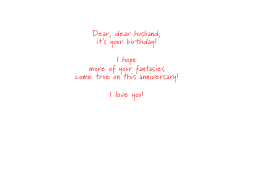 Dear, dear husband,
it's your birthday!
I hope
more of your fantasies
come true on this anniversary!
I love you!